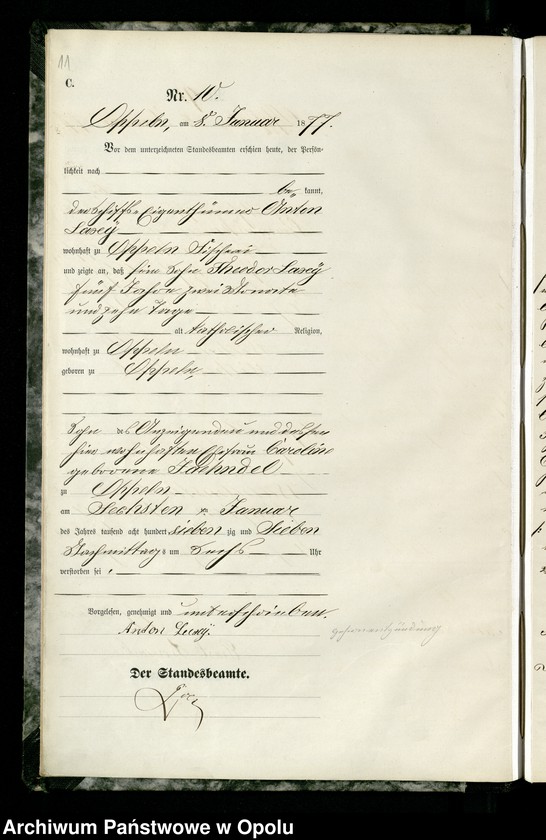 11
C.
Nr. 10.
Oppeln, am 8. Januar 1877.
Vor dem unterzeichneten Standesbeamten erschien heute, der Persön-
lichkeit nach
be kannt,
der Schiffs-Eigenthümer Anton
Lasey
wohnhaft zu Oppeln Fischerei
und zeigte an, daß sein Sohn Theodor Lasey
fünf Jahre zwei Monate
und zehn Tage
alt katholischer Religion,
wohnhaft zu Oppeln
geboren zu Oppeln,
Sohn des Anzeigenden und dessen
hier wohnhaften Ehefrau Carolin
geborene Jaehndel
zu Oppeln
am Sechsten Januar
des Jahres tausend acht hundert sieben zig und Sieben
Nachmittags um Sechs Uhr
verstorben sei,
Vorgelesen, genehmigt und unterschrieben.
Anton Lasey.
Gehirnentzündung
Der Standesbeamte.
Archiwum Państwowe w Opolu